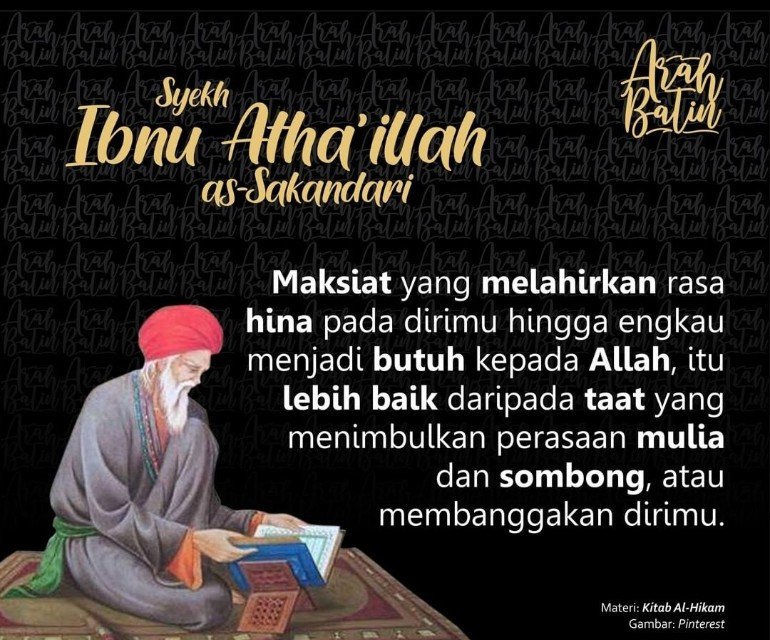 Syekh
Ibnu Atha'illah
as-Sakandari
Arah
Batin
Maksiat yang melahirkan rasa
hina pada dirimu hingga engkau
menjadi butuh kepada Allah, itu
lebih baik daripada taat yang
menimbulkan perasaan mulia
dan sombong, atau
membanggakan dirimu.
Materi: Kitab Al-Hikam
Gambar: Pinterest